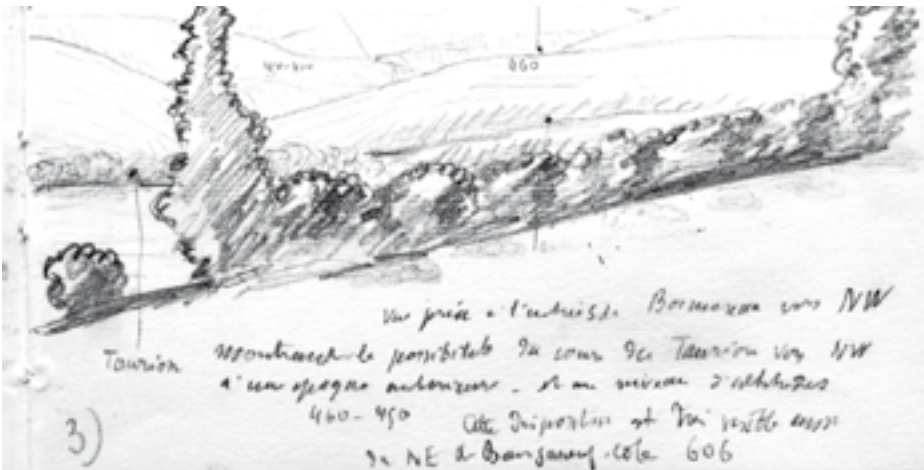 460
Vue prise à l'entrée de Bosmoreau vers NW
Taurion montrant la possibilité du cours du Taurion vers NW
à une époque antérieure - et au niveau d'altitudes
440-450 Cette disposition est très visible aussi
3) du NE de Bourganeuf-cote 606